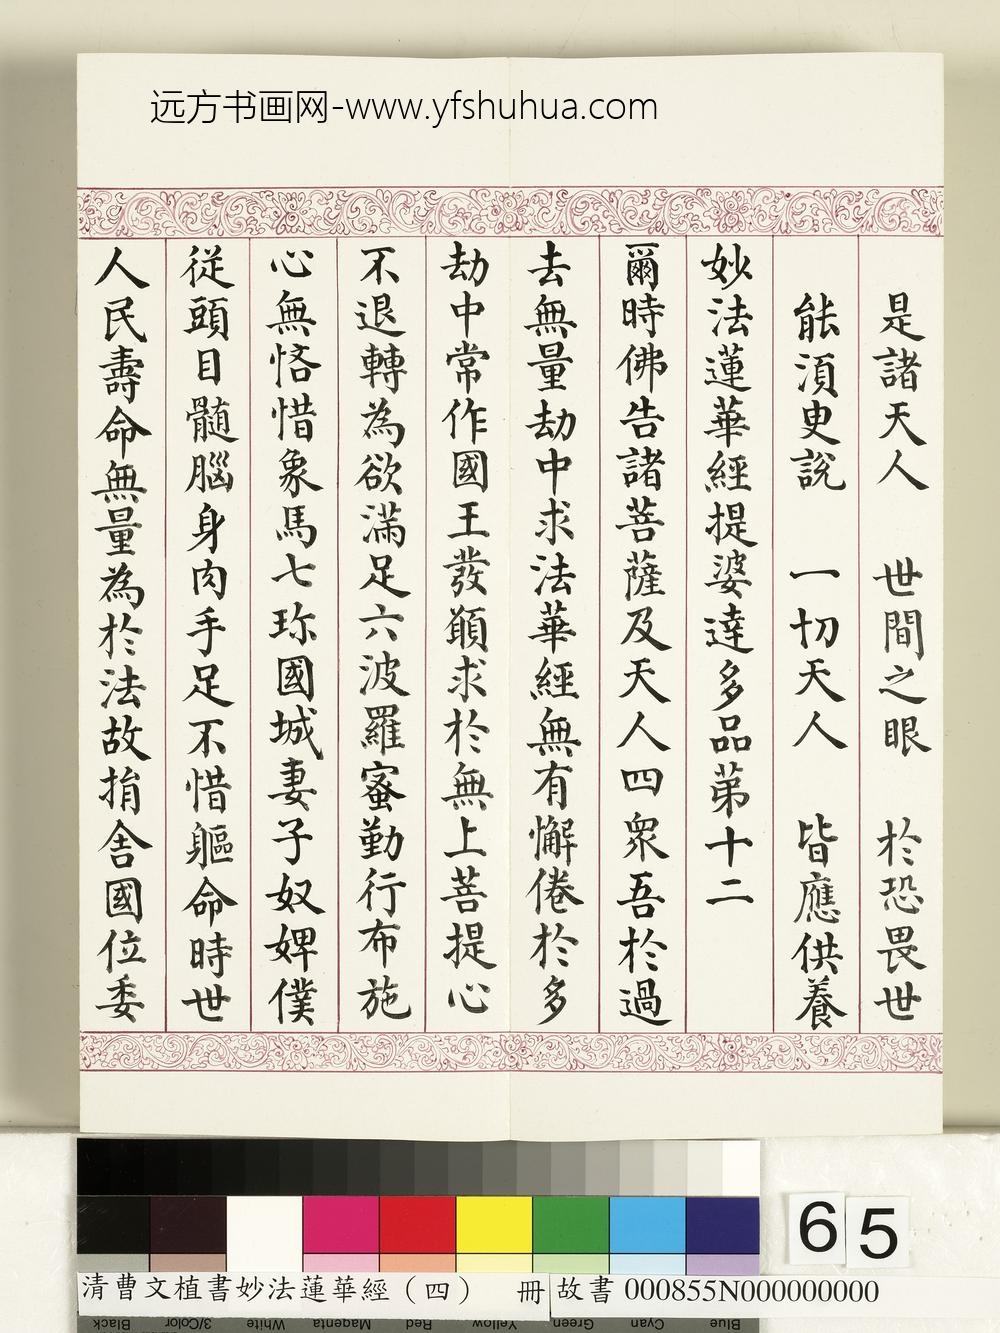 远方书画网-www.yfshuhua.com
是諸天人　世間之眼　於恐畏世
能須更說　一切天人　皆應供養
妙法蓮華經提婆達多品苐十二
爾時佛告諸菩薩及天人四眾吾於過
去無量劫中求法華經無有懈倦於多
劫中常作國王發願求於無上菩提心
不退轉為欲滿足六波羅蜜勤行布施
心無悋惜象馬七珎國城妻子奴婢僕
從頭目髓腦身肉手足不惜軀命時世
人民壽命無量為於法故捐舍國位委
65
清曹文植書妙法蓮華經（四）　冊
故書 000855N000000000
Black 3/Color White Magenta Red Yellow Green Cyan Blue